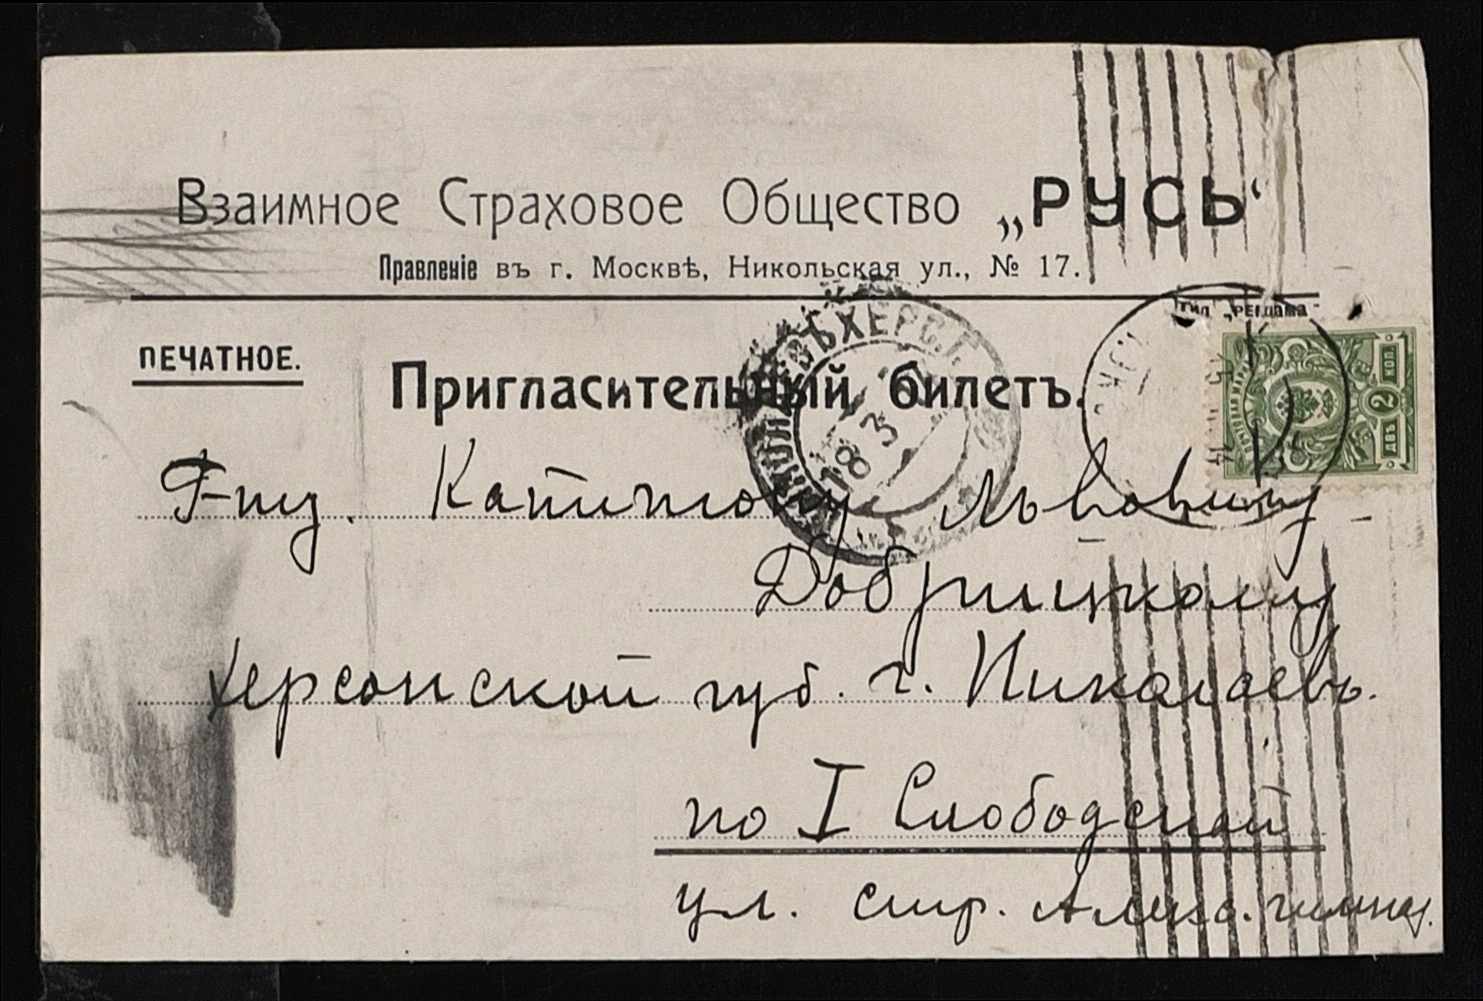 Взаимное Страховое Общество „РУСЬ“
Правленіе въ г. Москвѣ, Никольская ул., № 17.
Тип. „Реклама“
ПЕЧАТНОЕ.
Пригласительный билетъ.
НИКОЛАЕВЪ ХЕРС. Г.
18 3
2 КОП
ДВѢ
Г-ну. Капитону Львовичу
Добрицкому
Херсонской губ. г. Николаевъ.
по I Слободской
ул. стр. Алекс. гимназ.